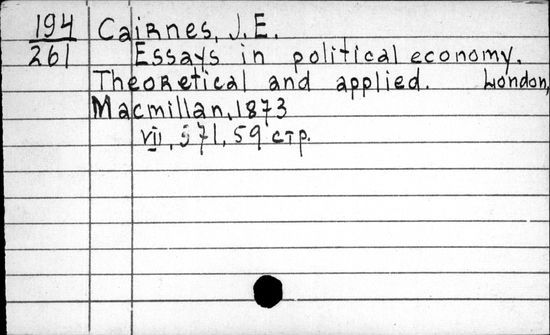 194 Cairnes, J.E.
261 Essays in political economy.
Theoretical and applied. London,
Macmillan, 1873
VII, 371, 59 стр.